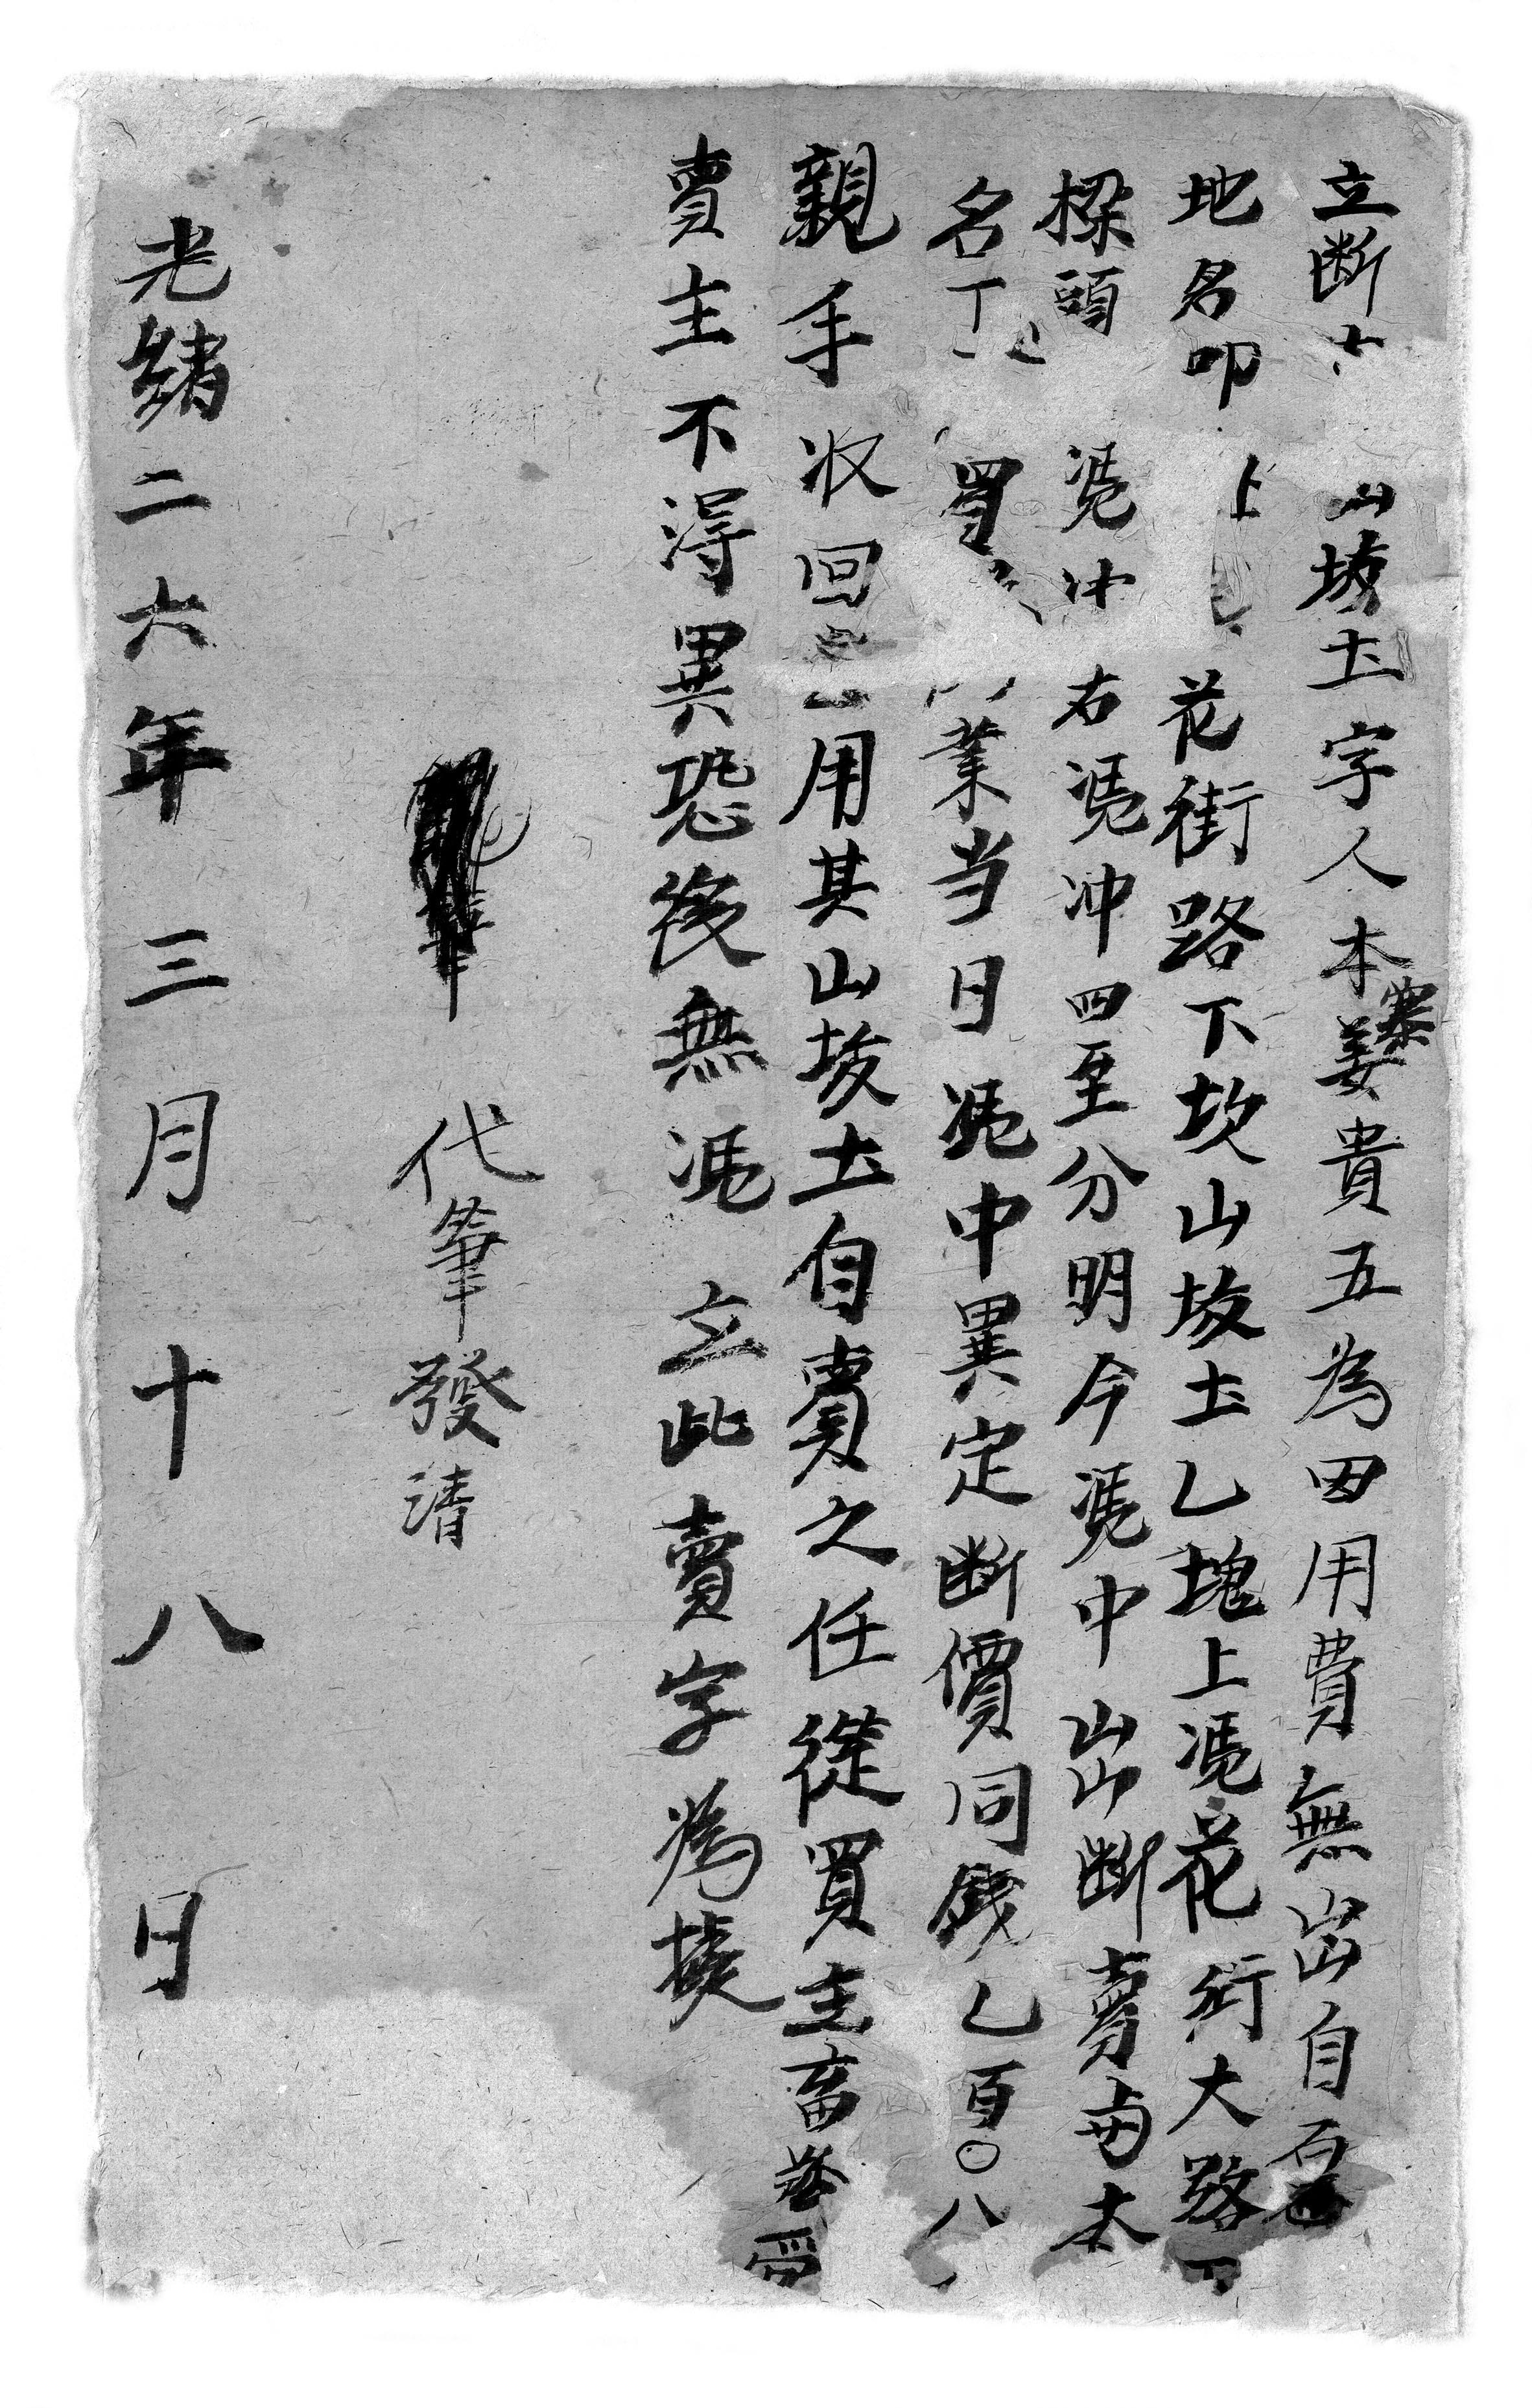 立断山坡土字人本寨姜貴五為因用費無出自
地名叩上花街路下坎山坡土乙塊上凴花街大路下
樑頭凴冲右凴冲四至分明今凴中出断賣与本
名下業当日凴中異定断價同錢乙百〇八
親手收回用其山坡土自賣之任從買主畜
賣主不得異恐後無凴立此賣字為據
代筆發清
光緒二六年三月十八日